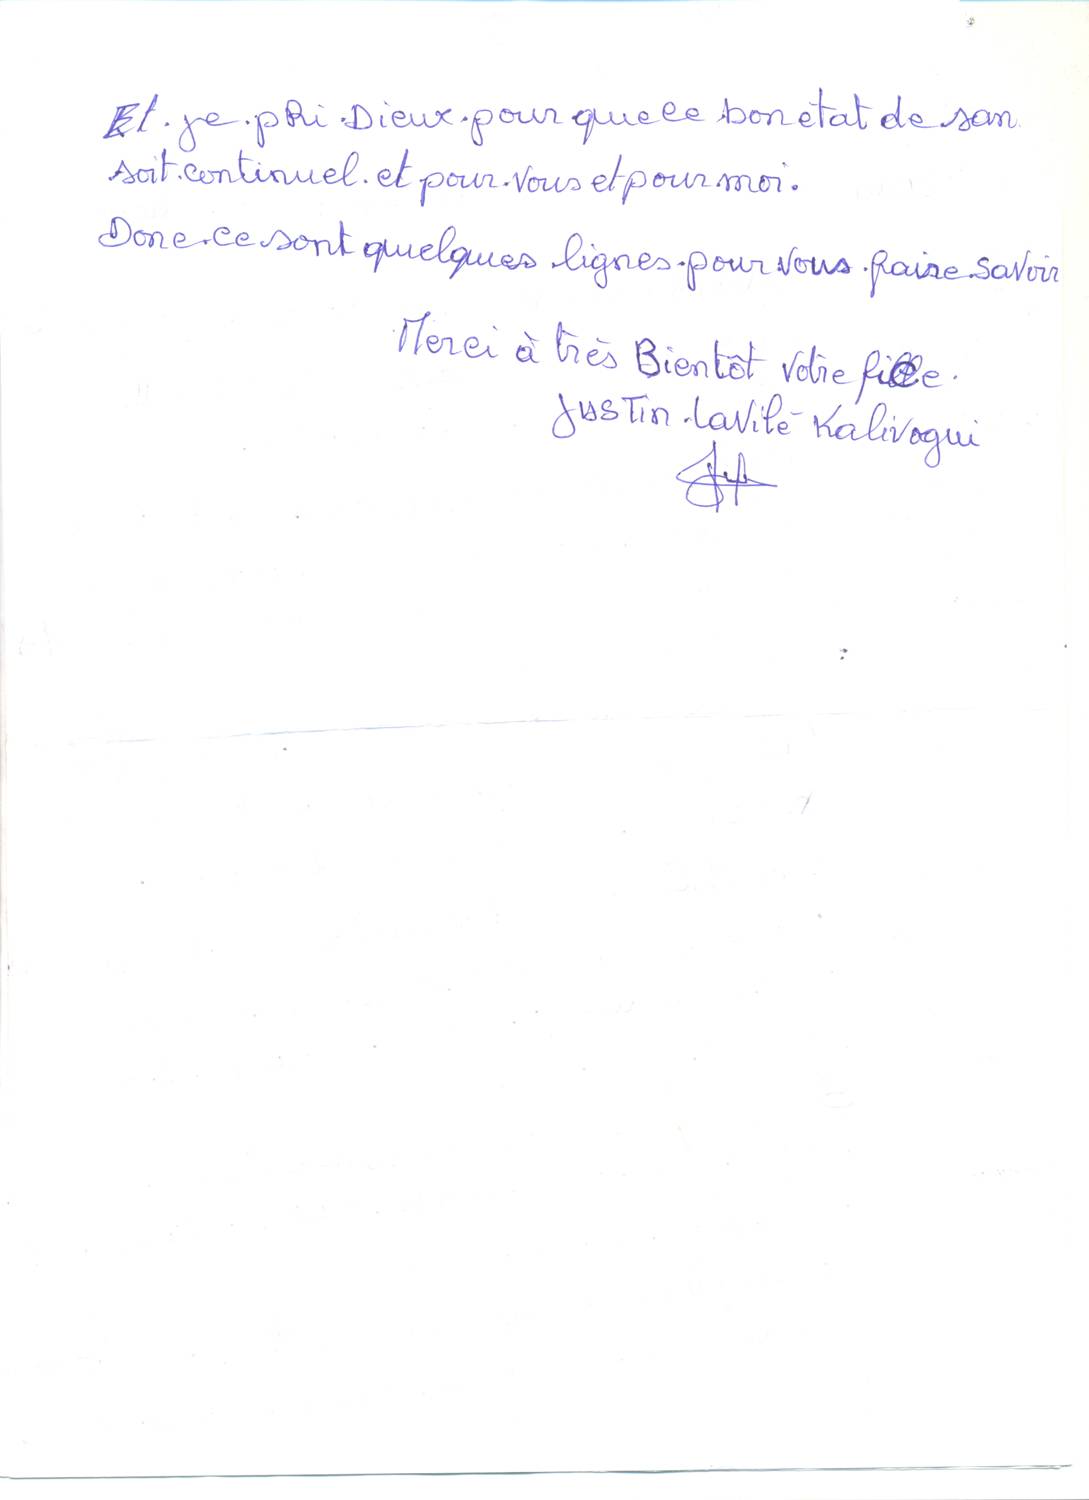 Et. je. pRi. Dieux. pour que ce bon état de san
soit. continuel. et pour. Vous et pour moi.
Donc. ce sont quelques lignes. pour vous. faire savoir
Merci à très Bientôt votre fille.
JUSTin. LaVilé Kalivogui